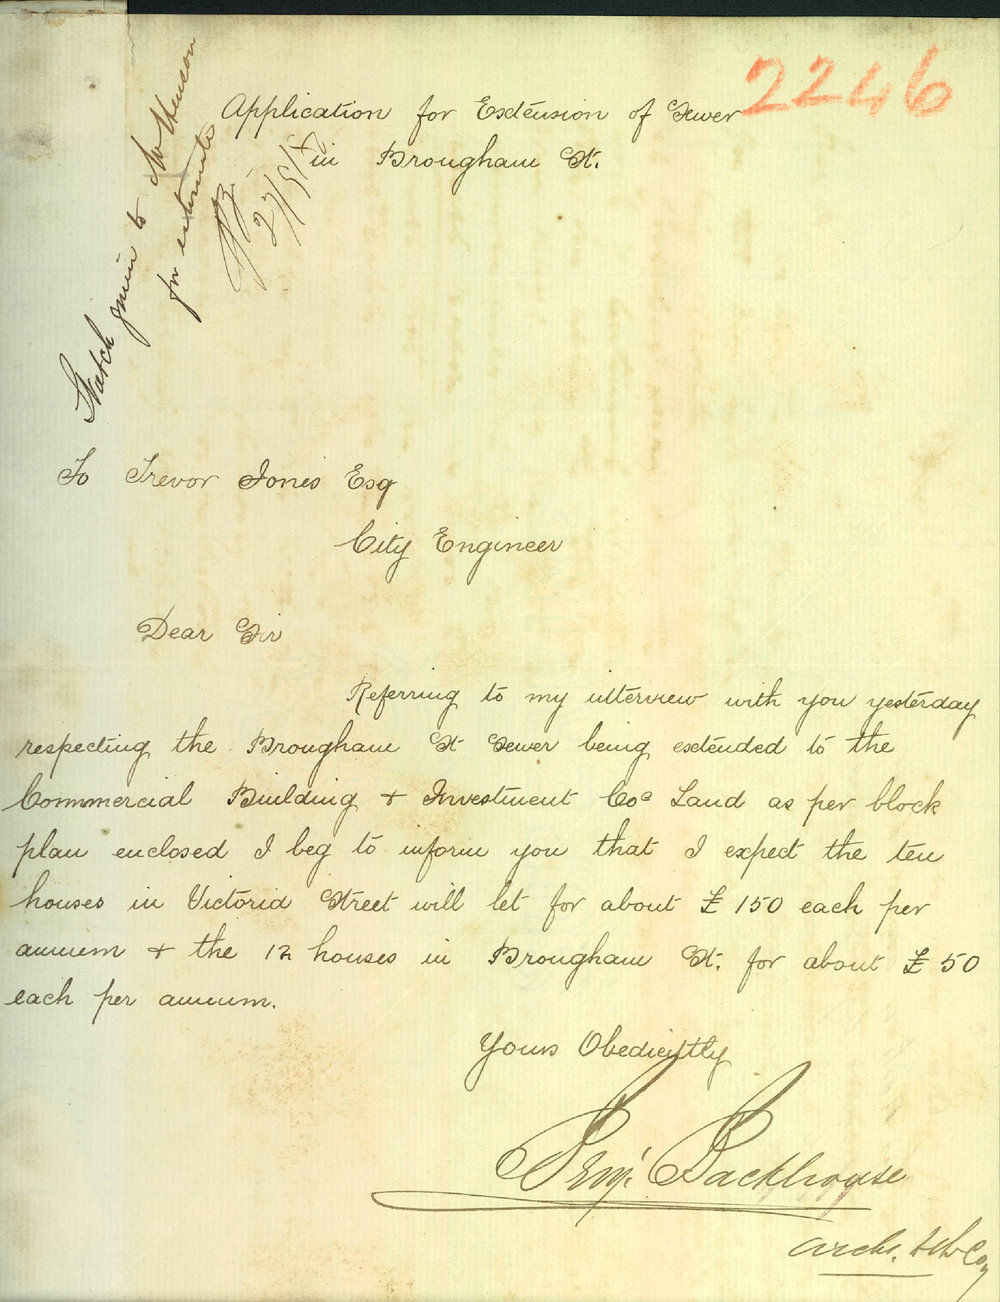 2246
Application for Extension of Sewer
in Brougham St.
Sketch given to Mr
for estimate
27/5/
To Trevor Jones Esq
City Engineer
Dear Sir
Referring to my interview with you yesterday
respecting the Brougham St Sewer being extended to the
Commercial Building & Investment Cos Land as per block
plan enclosed I beg to inform you that I expect the ten
houses in Victoria Street will let for about £150 each per
annum & the 12 houses in Brougham St. for about £50
each per annum.
Yours Obediently
Benj. Backhouse
Archt. to the Coy